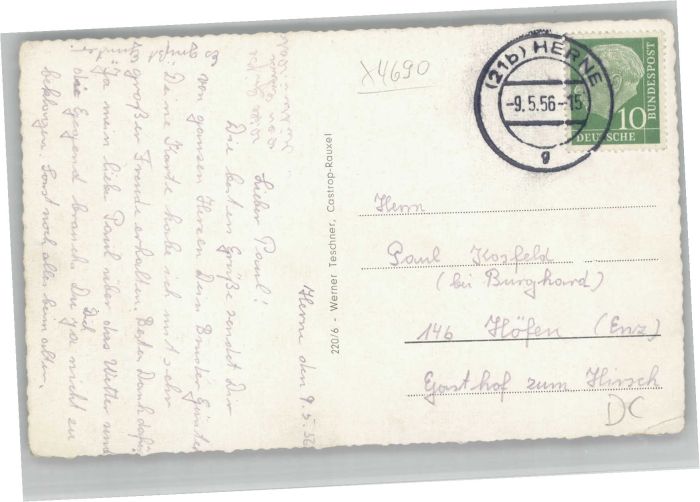 Herne den 9.5.56
Lieber Paul!
Die besten Grüße sendet Dir
von ganzen Herzen Dein Bruder Günter
Deine Karte habe ich mit sehr
großer Freude erhalten. Besten Dank dafür
Ja mein lieber Paul über das Wetter und
die Gegend brauchst Du ja nicht zu
Dich
beklagen. Sonst noch alles beim alten.
220/6 - Werner Teschner, Castrop-Rauxel
X4690
(21b) HERNE
-9.5.56-15
g
10
DEUTSCHE
BUNDESPOST
Herrn
Paul Kosfeld
(bei Burghard)
14b Höfen (Enz)
Gasthof zum Hirsch
DC